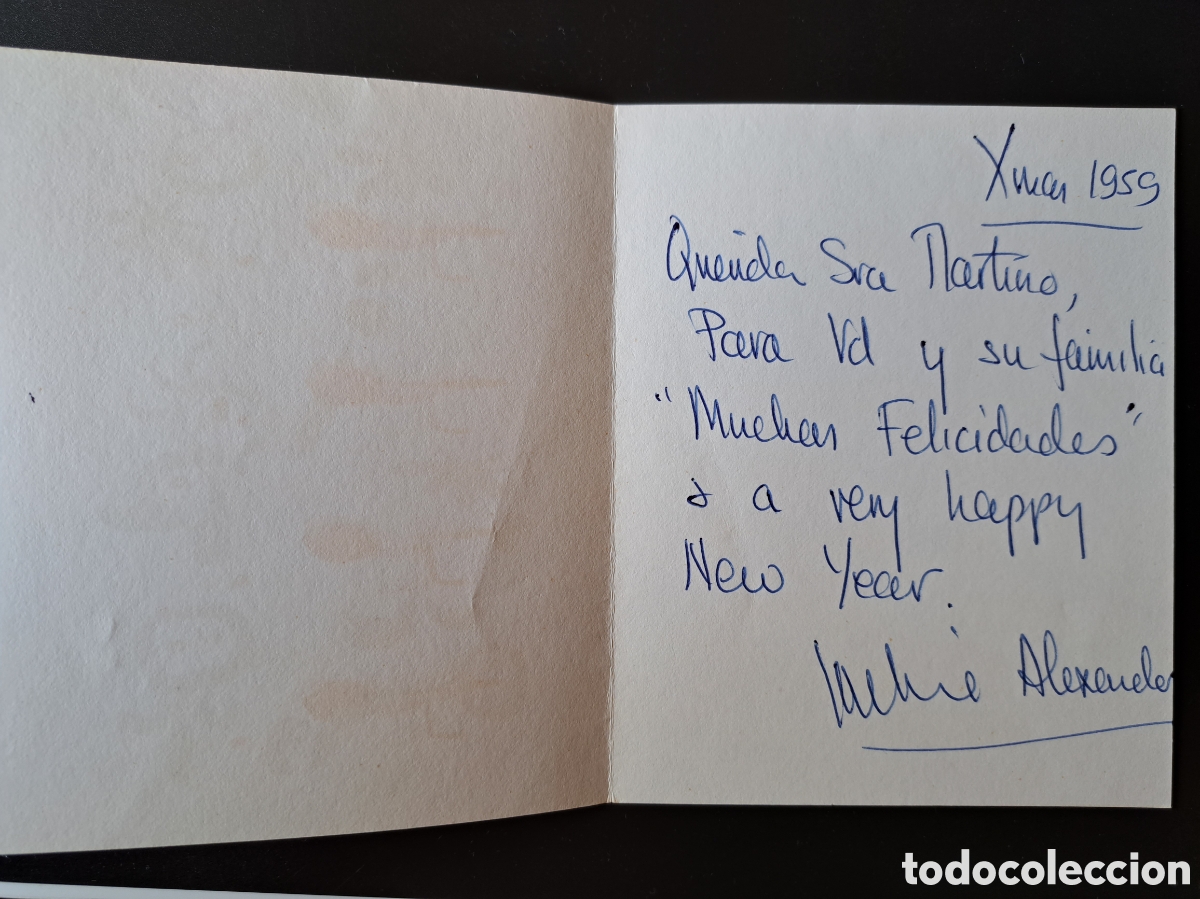 Xmas 1959
Querida Sra Martino,
Para Vd y su familia
"Muchas Felicidades"
& a very happy
New Year.
Jackie Alexander
todocoleccion